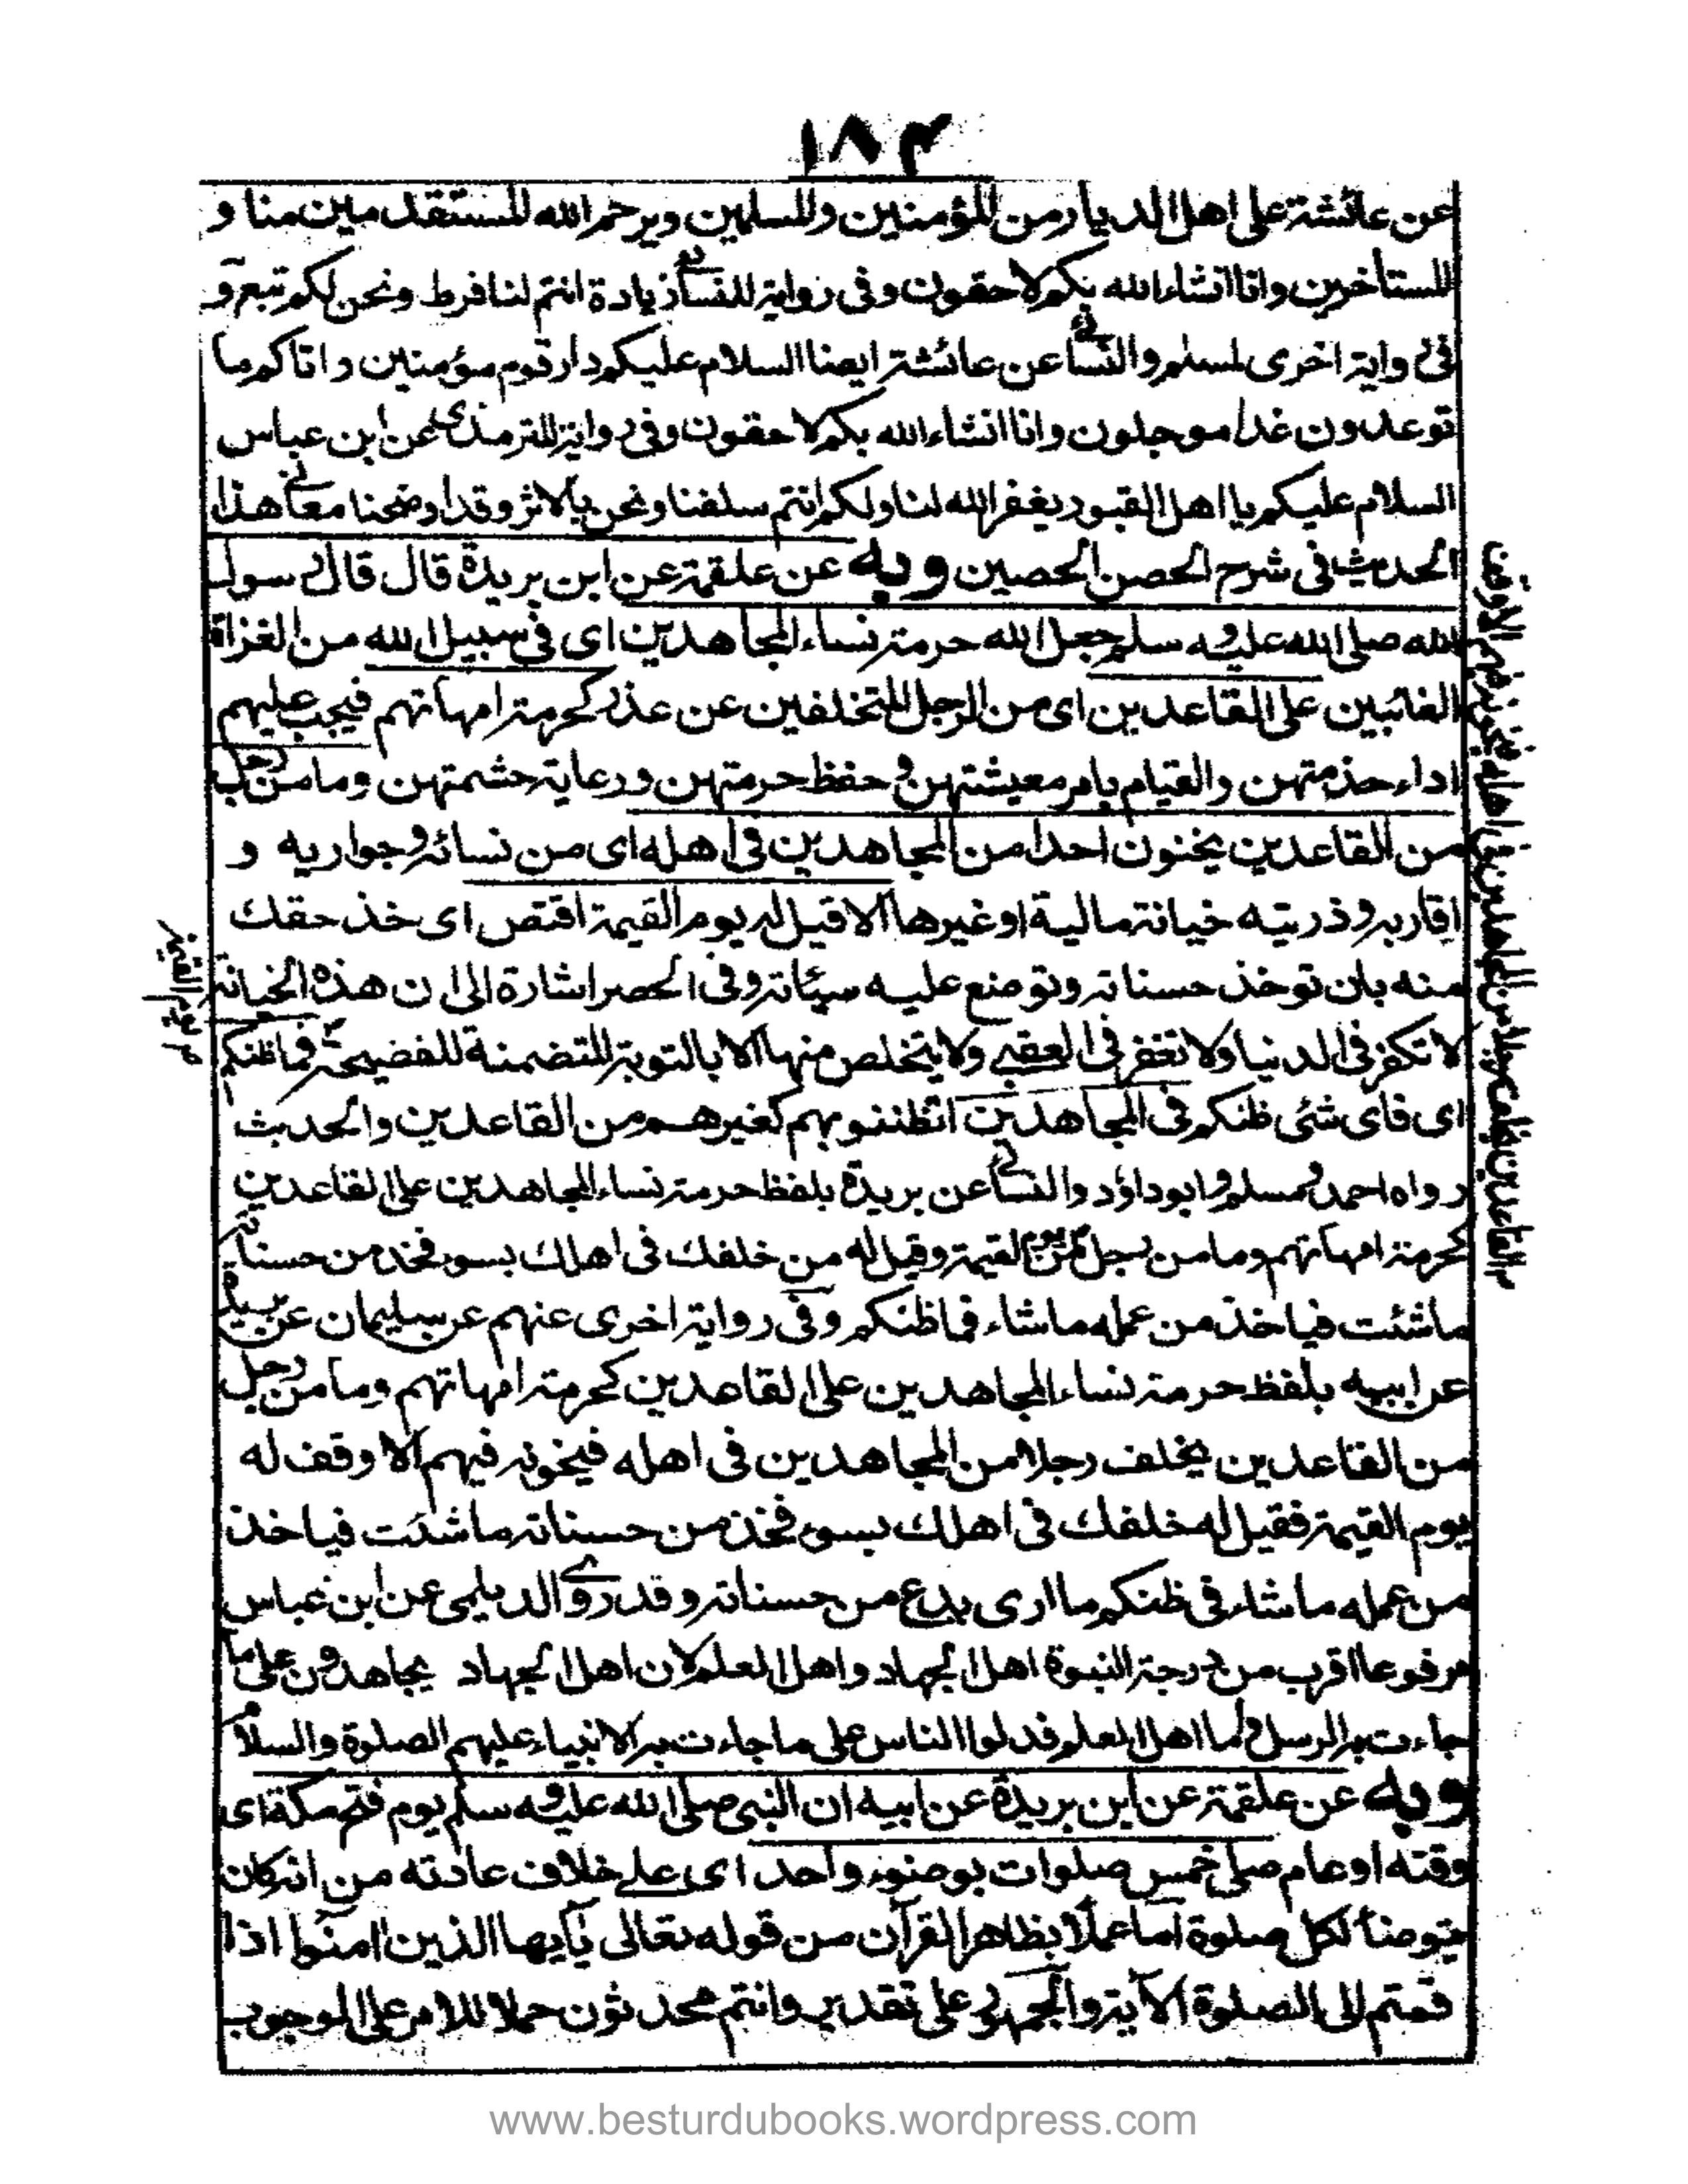 ١٨٣
عن عائشة على اهل الديار من المؤمنين والمسلمين ويرحم الله المستقدمين منا و
المستأخرين وانا انشاء الله بكم لاحقون وفى رواية للنسائى زيادة انتم لنا فرط ونحن لكم تبع و
فى رواية اخرى لمسلم والنسائى عن عائشة ايضا السلام عليكم دار قوم مؤمنين واتاكم ما
توعدون غدا موجلون وانا انشاء الله بكم لاحقون وفى رواية للترمذى عن ابن عباس
السلام عليكم يا اهل القبور يغفر الله لنا ولكم انتم سلفنا ونحن بالاثر وقد اوضحنا معانى هذا
الحديث فى شرح الحصن الحصين وبه عن علقمة عن ابن بريدة قال قال رسول
الله صلى الله عليه وسلم جعل الله حرمة نساء المجاهدين اى فى سبيل الله من الغزاة
الغائبين على القاعدين اى من الرجل المتخلفين عن عذر كحرمة امهاتهم فيجب عليهم
اداء حذمتهن والقيام بامر معيشتهن وحفظ حرمتهن ورعاية حشمتهن وما من رجل
من القاعدين يخنون احدا من المجاهدين فى اهله اى من نسائه وجواريه و
اقاربه وذريته خيانة مالية او غيرها الا قيل له يوم القيمة اقتص اى خذ حقك
منه بان توخذ حسناته وتوضع عليه سيئاته وفى الحصر اشارة الى ان هذه الخيانة
لا تكفر فى الدنيا ولا تغفر فى العقبے ولا يتخلص منها الا بالتوبة المتضمنة للفضيحة فما ظنكم
اى فاى شئ ظنكم فى المجاهدين اتظننوبهم كغيرهم من القاعدين والحديث
رواه احمد ومسلم وابوداؤد والنسائى عن بريدة بلفظ حرمة نساء المجاهدين على القاعدين
كحرمة امهاتهم وما من رجل يوم القيمة وقيل له من خلفك فى اهلك بسوء فخذ من حسناته
ماشئت فياخذ من عمله ماشاء فما ظنكم وفى رواية اخرى عنهم عن سليمان عن بريدة
عن ابيه بلفظ حرمة نساء المجاهدين على القاعدين كحرمة امهاتهم وما من رجل
من القاعدين يخلف رجلا من المجاهدين فى اهله فيخونه فيهم الا وقف له
يوم القيمة فقيل له خلفك فى اهلك بسوء فخذ من حسناته ماشئت فياخذ
من عمله ماشاء فى ظنكم ما ارى يدع من حسناته وقد روى الديلمى عن ابن عباس
مرفوعا اقرب من درجة النبوة اهل الجهاد واهل العلم لان اهل الجهاد يجاهدون على ما
جاءت به الرسل واما اهل العلم فدلوا الناس على ما جاءت به الانبياء عليهم الصلوة والسلام
وبه عن علقمة عن ابن بريدة عن ابيه ان النبى صلى الله عليه وسلم يوم فتح مكة اى
وقته او عام صلى خمس صلوات بوضوء واحد اى علے خلاف عادته من انه كان
يتوضأ لكل صلوة اما عملا بظاهر القرآن من قوله تعالى يآيها الذين امنوا اذا
قمتم الى الصلوة الآية والجمهور على تقدير وانتم محدثون حملا للامر على الوجوب
من القاعدين يخلف رجلا من المجاهدين فى اهله فيخونه فيهم الا وقف
يوم القيمة
www.besturdubooks.wordpress.com